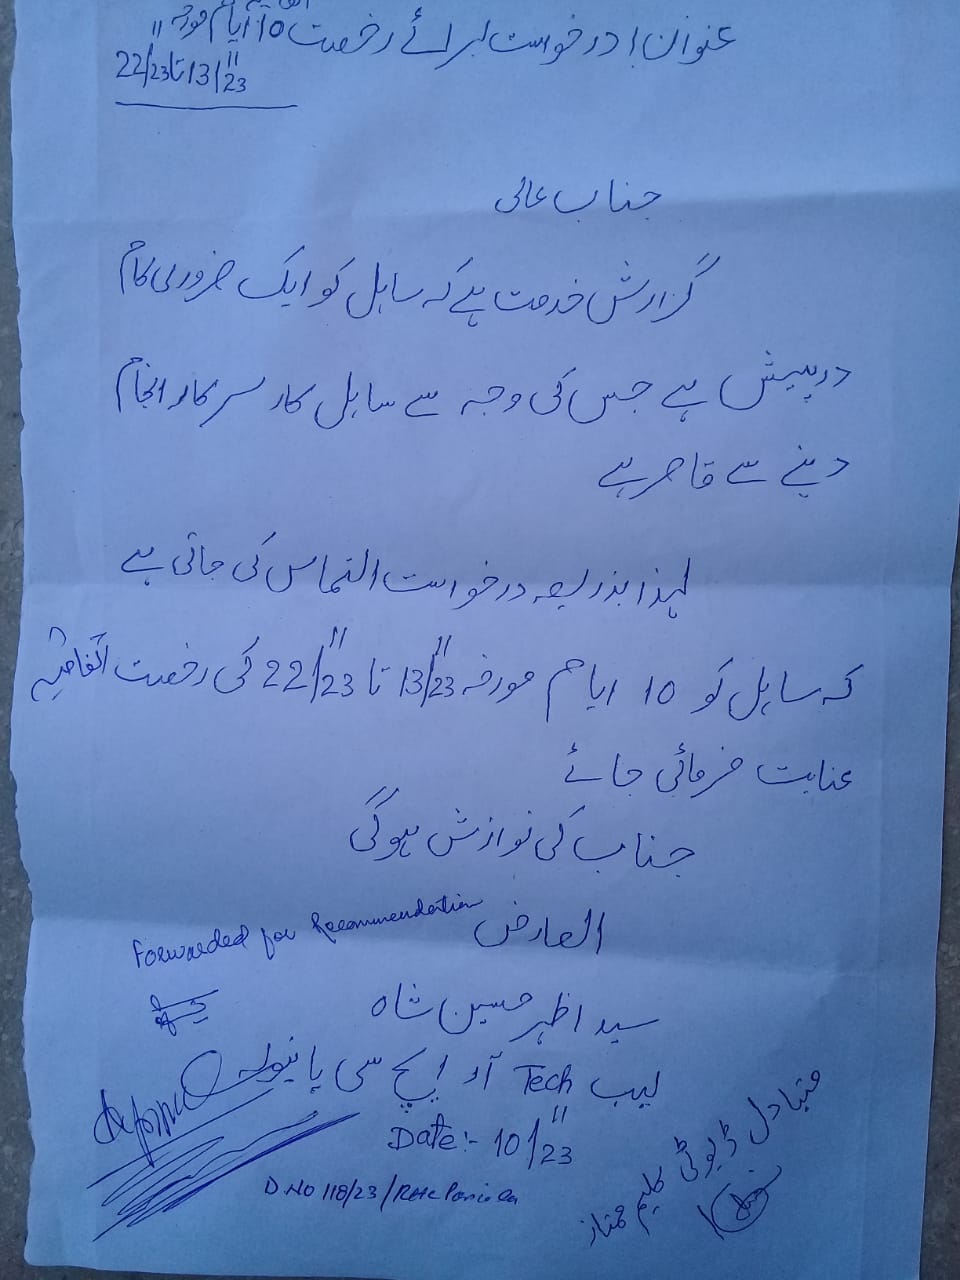 عنوان: درخواست برائے رخصت 10 ایام مورخہ
13/11/23 تا 22/11/23
جناب عالی
گزارش خدمت ہے کہ سایل کو ایک ضروری کام
درپیش ہے جس کی وجہ سے سایل کار سرکار انجام
دینے سے قاصر ہے
لہذا بذریعہ درخواست التماس کی جاتی ہے
کہ سایل کو 10 ایام مورخہ 13/11/23 تا 22/11/23 کی رخصت اتفاقیہ
عنایت فرمائی جائے
جناب کی نوازش ہوگی
العارض
Forwarded for Recommendation
سید اظہر حسین شاہ
لیب Tech آر ایچ سی پانیولہ
Date:- 10/11/23
متبادل ڈیوٹی کلیم ممتاز
D No 118/23/RHC Paniola